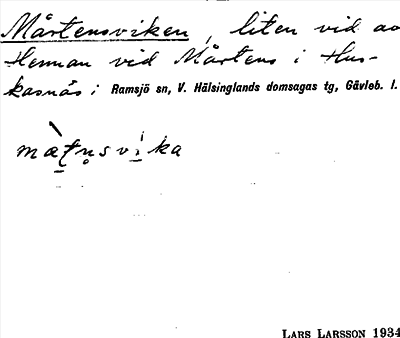 Mårtensviken, liten vid av
Hennan vid Mårtens i Hus-
kasnäs i Ramsjö sn, V. Hälsinglands domsagas tg, Gävleb. l.
mæ̀t̨n̥svi̇ka
LARS LARSSON 1934